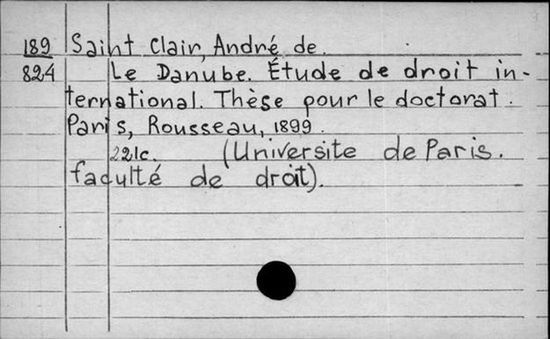 189 Saint Clair, André de.
824 Le Danube. Étude de droit in-
ternational. Thèse pour le doctorat.
Paris, Rousseau, 1899.
221c. (Universite de Paris.
faculté de droit).